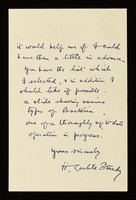 it would help me if I could
have them a little in advance.
you have the list which
I selected, & in addition I
should like if possible
a slide showing various
types of Bacteria,
one of a thoroughly up to date
operation in progress.
Yours sincerely
H.